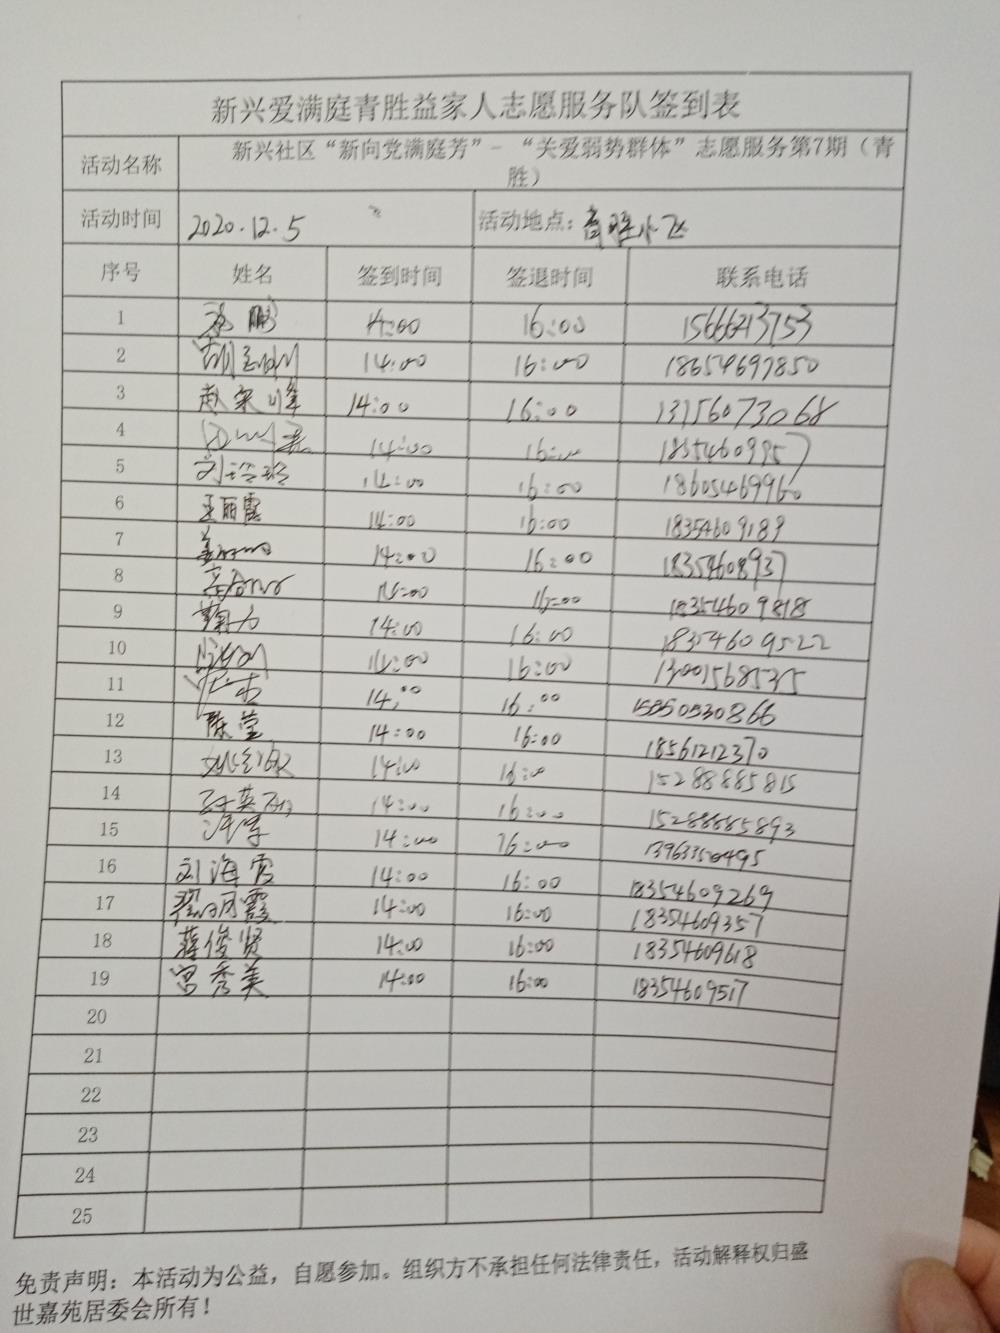 新兴爱满庭青胜益家人志愿服务队签到表
活动名称 新兴社区“新向党满庭芳”- “关爱弱势群体”志愿服务第7期（青
胜）
活动时间 2020.12.5 活动地点: 青胜小区
序号 姓名 签到时间 签退时间 联系电话
1 鹏 14:00 16:00 15666213753
2 胡 14:00 16:00 18654697850
3 赵荣峰 14:00 16:00 13756073068
4 14:00 16:00 18354609957
5 刘玲玲 14:00 16:00 18605469960
6 王丽霞 14:00 16:00 18354609189
7 姜 14:00 16:00 18354608937
8 14:00 16:00 18354609818
9 14:00 16:00 18354609522
10 14:00 16:00 13001568535
11 14:00 16:00 15850530866
12 陈莹 14:00 16:00 18561212370
13 14:00 16:00 15288885815
14 14:00 16:00 15288885893
15 14:00 16:00 13963350495
16 刘海霞 14:00 16:00 18354609269
17 翟丽霞 14:00 16:00 18354609357
18 蒋俊贤 14:00 16:00 18354609618
19 宫秀美 14:00 16:00 18354609517
20
21
22
23
24
25
免责声明：本活动为公益，自愿参加。组织方不承担任何法律责任，活动解释权归盛
世嘉苑居委会所有！